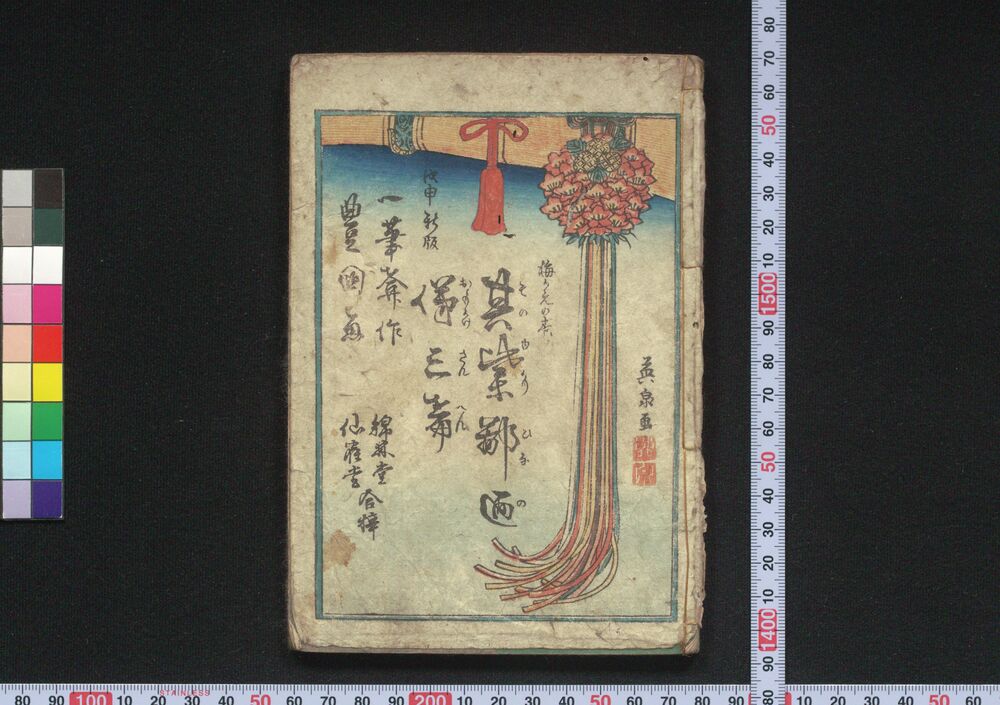 英泉画
梅が香の巻
其紫鄙廼
そのゆかりひなの
俤三編
おもかげさんへん
戊申新版
一筆葊作
豊国画
錦林堂
仙鶴堂
合梓
80 70 60 50 40 30 20 10 1500 90 80 70 60 50 40 30 20 10 1400 90 80
80 90 100 10 20 30 40 50 60 70 80 90 200 10 20 30 40 50 60 70 80 90 10 20 30 40 50 60
STAINLESS